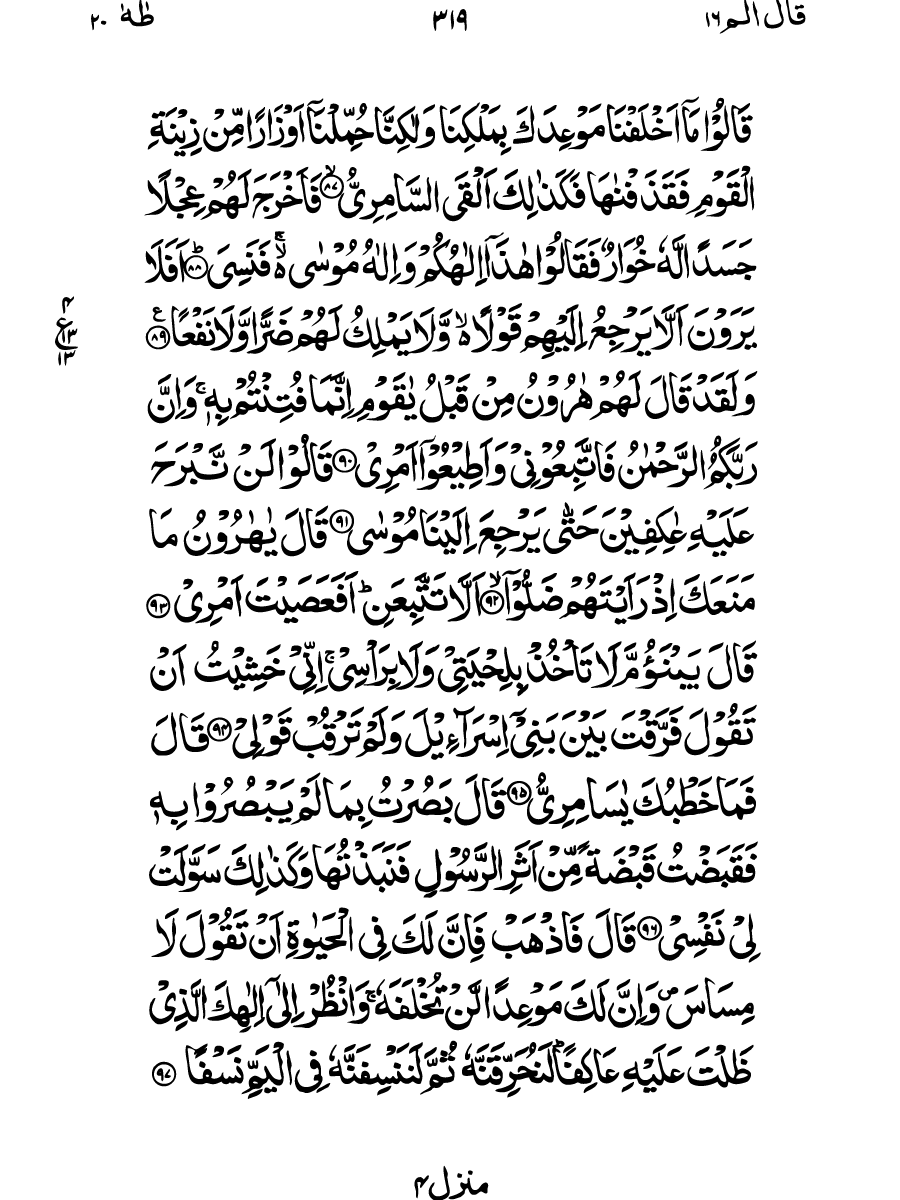 قال الم ١٦ ٣١٩ طٰهٰ ٢٠
قَالُوْا مَاۤ اَخْلَفْنَا مَوْعِدَكَ بِمَلْكِنَا وَلٰكِنَّا حُمِّلْنَاۤ اَوْزَارًا مِّنْ زِيْنَةِ
الْقَوْمِ فَقَذَفْنٰهَا فَكَذٰلِكَ اَلْقَى السَّامِرِىُّ ۙ‏﴿۸۷﴾ فَاَخْرَجَ لَهُمْ عِجْلًا
جَسَدًا لَّهٗ خُوَارٌ فَقَالُوْا هٰذَاۤ اِلٰهُكُمْ وَاِلٰهُ مُوْسٰى ۬ ۚ فَنَسِىَ ؕ‏﴿۸۸﴾ اَفَلَا
يَرَوْنَ اَلَّا يَرْجِعُ اِلَيْهِمْ قَوْلًا ۬ ۙ وَّلَا يَمْلِكُ لَهُمْ ضَرًّا وَّلَا نَفْعًا ﴿۸۹﴾ ع
٤ ع ١٣ ١٣
وَلَقَدْ قَالَ لَهُمْ هٰرُوْنُ مِنْ قَبْلُ يٰقَوْمِ اِنَّمَا فُتِنْتُمْ بِهٖ ۚ وَاِنَّ
رَبَّكُمُ الرَّحْمٰنُ فَاتَّبِعُوْنِىْ وَاَطِيْعُوْۤا اَمْرِىْ ﴿۹۰﴾ قَالُوْا لَنْ نَّبْرَحَ
عَلَيْهِ عٰكِفِيْنَ حَتّٰى يَرْجِعَ اِلَيْنَا مُوْسٰى ﴿۹۱﴾ قَالَ يٰهٰرُوْنُ مَا
مَنَعَكَ اِذْ رَاَيْتَهُمْ ضَلُّوْۤا ۙ‏﴿۹۲﴾ اَلَّا تَتَّبِعَنِ ؕ اَفَعَصَيْتَ اَمْرِىْ ﴿۹۳﴾
قَالَ يَبْنَؤُمَّ لَا تَاْخُذْ بِلِحْيَتِىْ وَلَا بِرَاْسِىْ ۚ اِنِّىْ خَشِيْتُ اَنْ
تَقُوْلَ فَرَّقْتَ بَيْنَ بَنِىْۤ اِسْرَآءِيْلَ وَلَمْ تَرْقُبْ قَوْلِىْ ﴿۹۴﴾ قَالَ
فَمَا خَطْبُكَ يٰسَامِرِىُّ ﴿۹۵﴾ قَالَ بَصُرْتُ بِمَا لَمْ يَبْصُرُوْا بِهٖ
فَقَبَضْتُ قَبْضَةً مِّنْ اَثَرِ الرَّسُوْلِ فَنَبَذْتُهَا وَكَذٰلِكَ سَوَّلَتْ
لِىْ نَفْسِىْ ﴿۹۶﴾ قَالَ فَاذْهَبْ فَاِنَّ لَكَ فِى الْحَيٰوةِ اَنْ تَقُوْلَ لَا
مِسَاسَ ۪ وَاِنَّ لَكَ مَوْعِدًا لَّنْ تُخْلَفَهٗ ۚ وَانْظُرْ اِلٰٓى اِلٰهِكَ الَّذِىْ
ظَلْتَ عَلَيْهِ عَاكِفًا ؕ لَنُحَرِّقَنَّهٗ ثُمَّ لَنَنْسِفَنَّهٗ فِى الْيَمِّ نَسْفًا ﴿۹۷﴾
منزل ٤